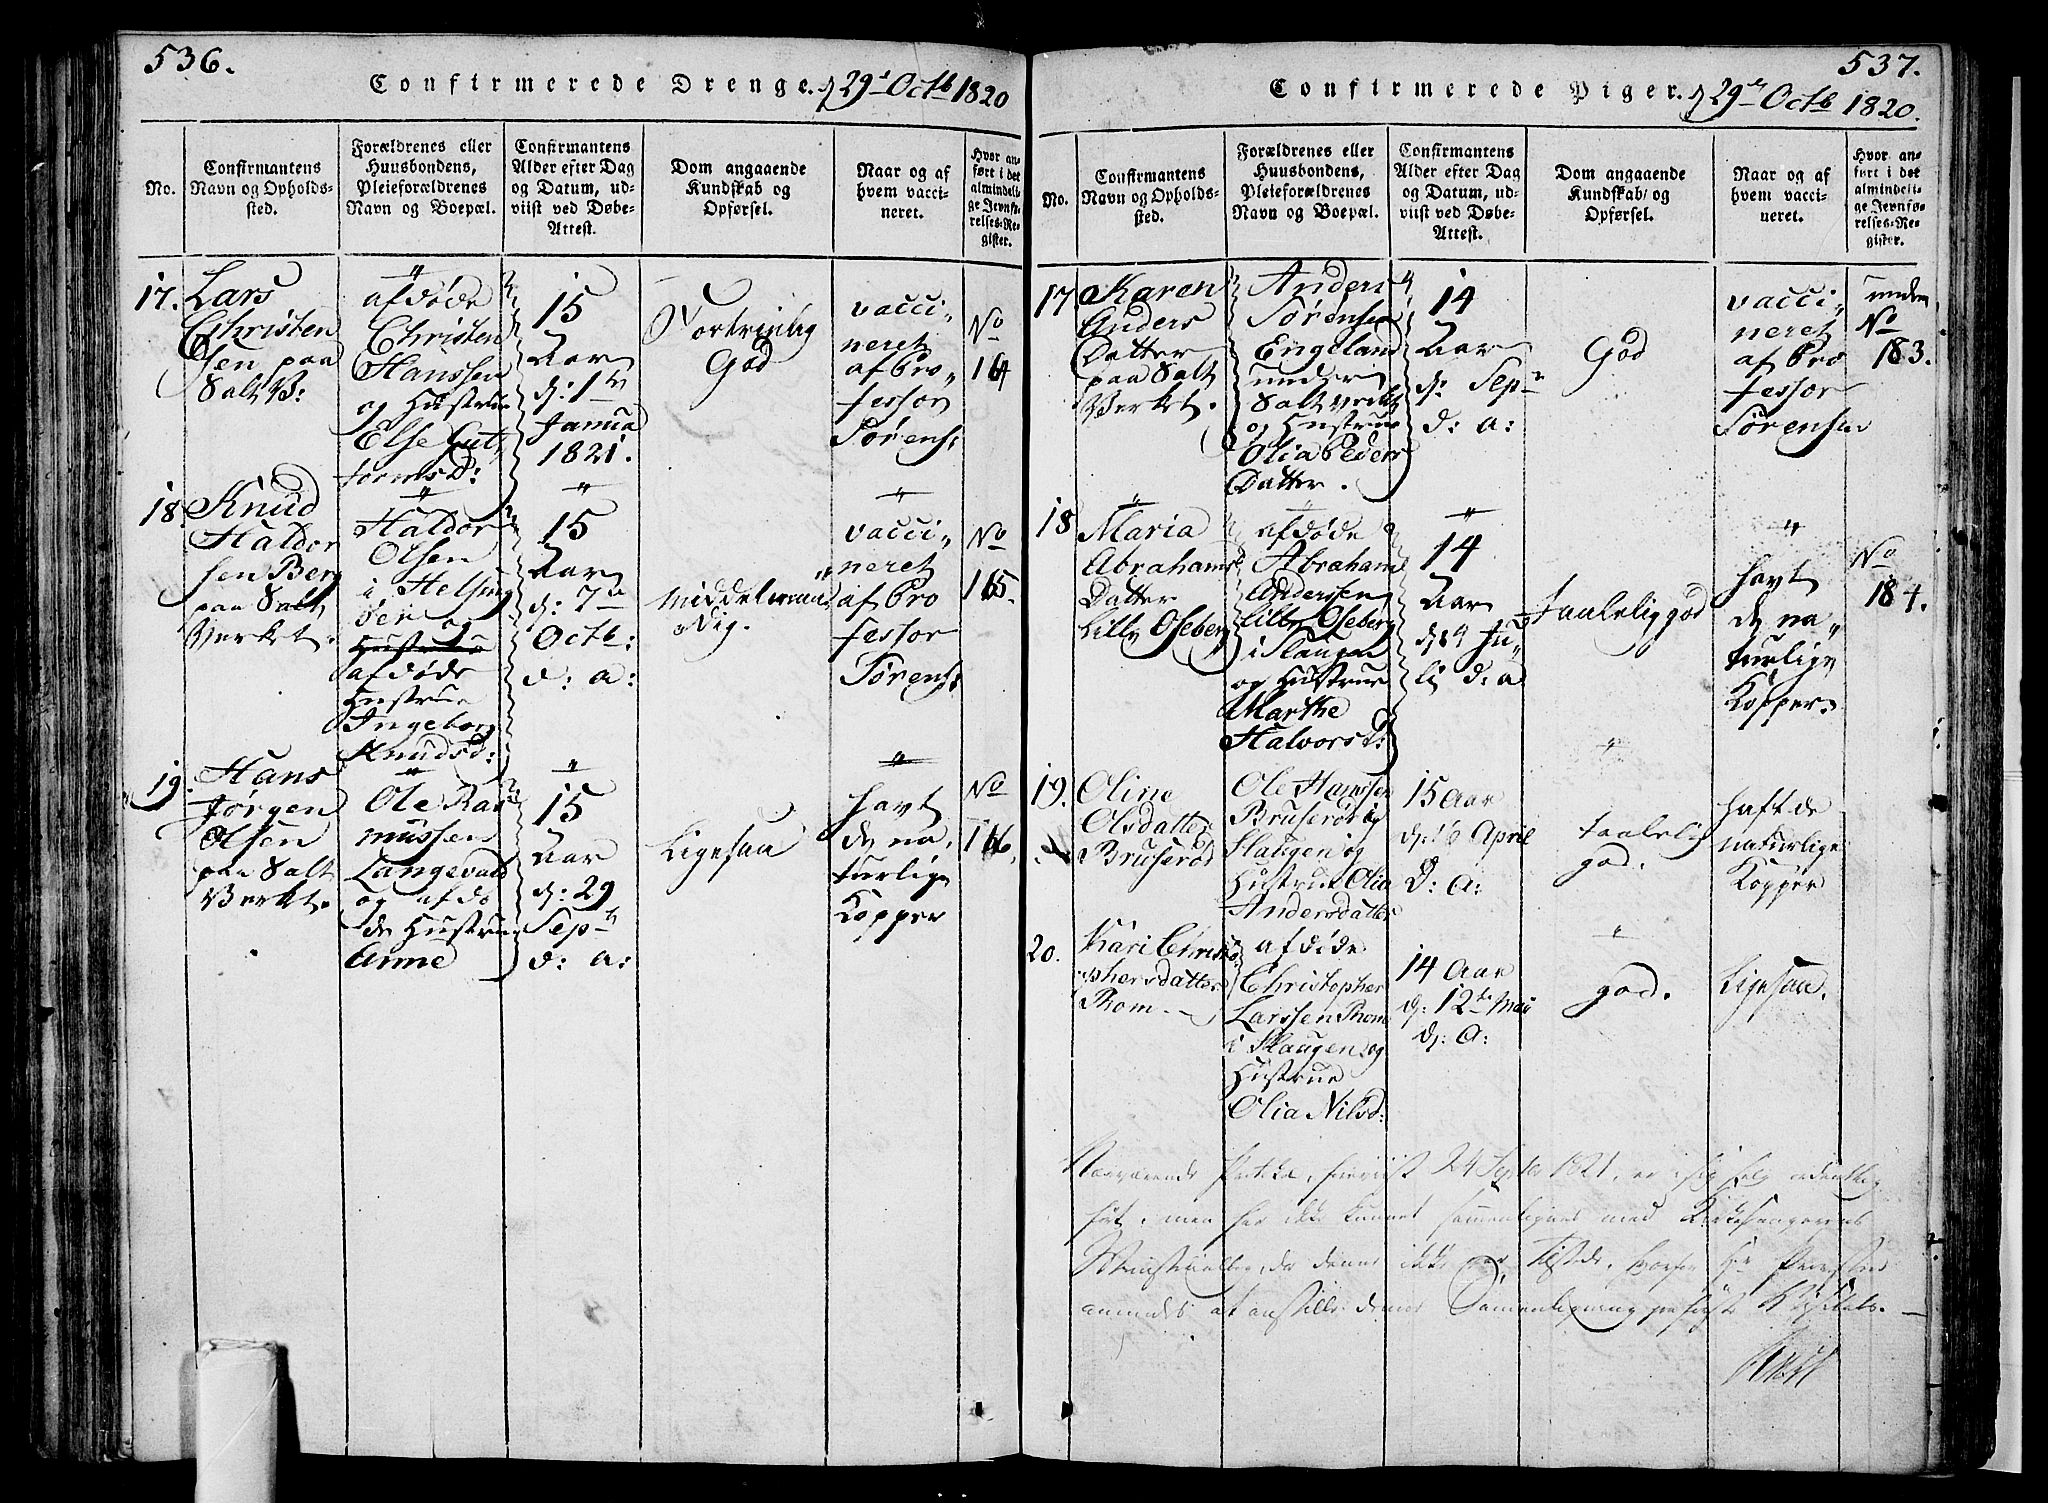 536.
Confirmerede Drenge. d. 29de Octb 1820
No.
Confirmantens
Navn og Opholds-
sted.
Forældrenes eller
Huusbondens,
Pleieforældrenes
Navn og Boepæl.
Confirmantens
Alder efter Dag
og Datum, ud-
viist ved Døbe-
Attest.
Dom angaaende
Kundskab og
Opførsel.
Naar og af
hvem vacci-
neret.
Hvor an-
ført i det
almindeli-
ge Jevnfø-
relses-Re-
gister.
17.
Lars
Christen
sen paa
Salt V:
afdøde
Christen
Hanssen
og Hustrue
Else Gut,
formsD:
15
Aar
d: 1te
Janua
1821.
Fortrinlig
God
vacci,
neret
af Pro,
fessor
Sørens:
No
164
18.
Knud
Haldor
sen Berg
paa Salt
Verket.
"
Haldor
Olsen
i Helsing
øer og
Hustrue
afdøde
Hustrue
Ingeborg
Knudsd:
"
15
Aar
d: 7de
Octb:
d: a:
Middelmaa,
dig.
"
vacci,
neret
af Pro
fessor
Sørens:
No
165.
19.
Hans
Jørgen
Olsen
paa Salt
Verket.
"
Ole Ras
mussen
Langevald
og afdø
de Hustrue
Anne
"
15
Aar
d: 29
Sept
d: a:
Ligesaa
"
havt
de na,
turlige
Kopper
No
166.
537.
Confirmerede Piger. d. 29de Octb 1820.
No.
Confirmantens
Navn og Opholds-
sted.
Forældrenes eller
Huusbondens,
Pleieforældrenes
Navn og Boepæl.
Confirmantens
Alder efter Dag
og Datum, ud-
viist ved Døbe-
Attest.
Dom angaaende
Kundskab og
Opførsel.
Naar og af
hvem vacci-
neret.
Hvor an-
ført i det
almindeli-
ge Jevnfø-
relses-Re-
gister.
17
Karen
Anders
Datter
paa Salt
Verket.
Anders
Sørensen
Engeland
under
Salt Verket
og Hustrue
Olia Peders
Datter.
14
Aar
d: Sepr
d: a:
God
vacci,
neret
af Pro
fessor
Sørensen
under
No
183.
18
"
Maria
Abrahams
Datter
Lille Oseberg
"
afdøde
Abraham
Anderssen
Lille Oseberg
i Slaugen
og Hustrue
Marthe
Halvorsd:
"
14
Aar
d: 4 Ju,
li d: a
Taalelig god
"
havt
de na,
turlige
Kopper.
No
184.
19.
Oline
Olsdatter
Bruserød
Ole Hanssen
Bruserød i
Slaugen og
Hustrue Olia
Andersdatter
15 Aar
d: 16 April
d: a:
"
Taalelig
god.
haft de
naturlige
Kopper
20.
Kari Christo
phersdatter
Rom.
afdøde
Christopher
Larssen Rom
i Slaugen og
Hustrue
Olia Nilsd:
14 Aar
d: 12te Mai
d: A:
"
god.
Ligesaa.
Nærværende 24 Septbr 1821, er i sig selv ordentlig
ført, men har ikke kunnet samenlignes med Kirkesangerens
da denne ikke var tilstede, Hr Præsten
anmodes at anstille denne Samenligning